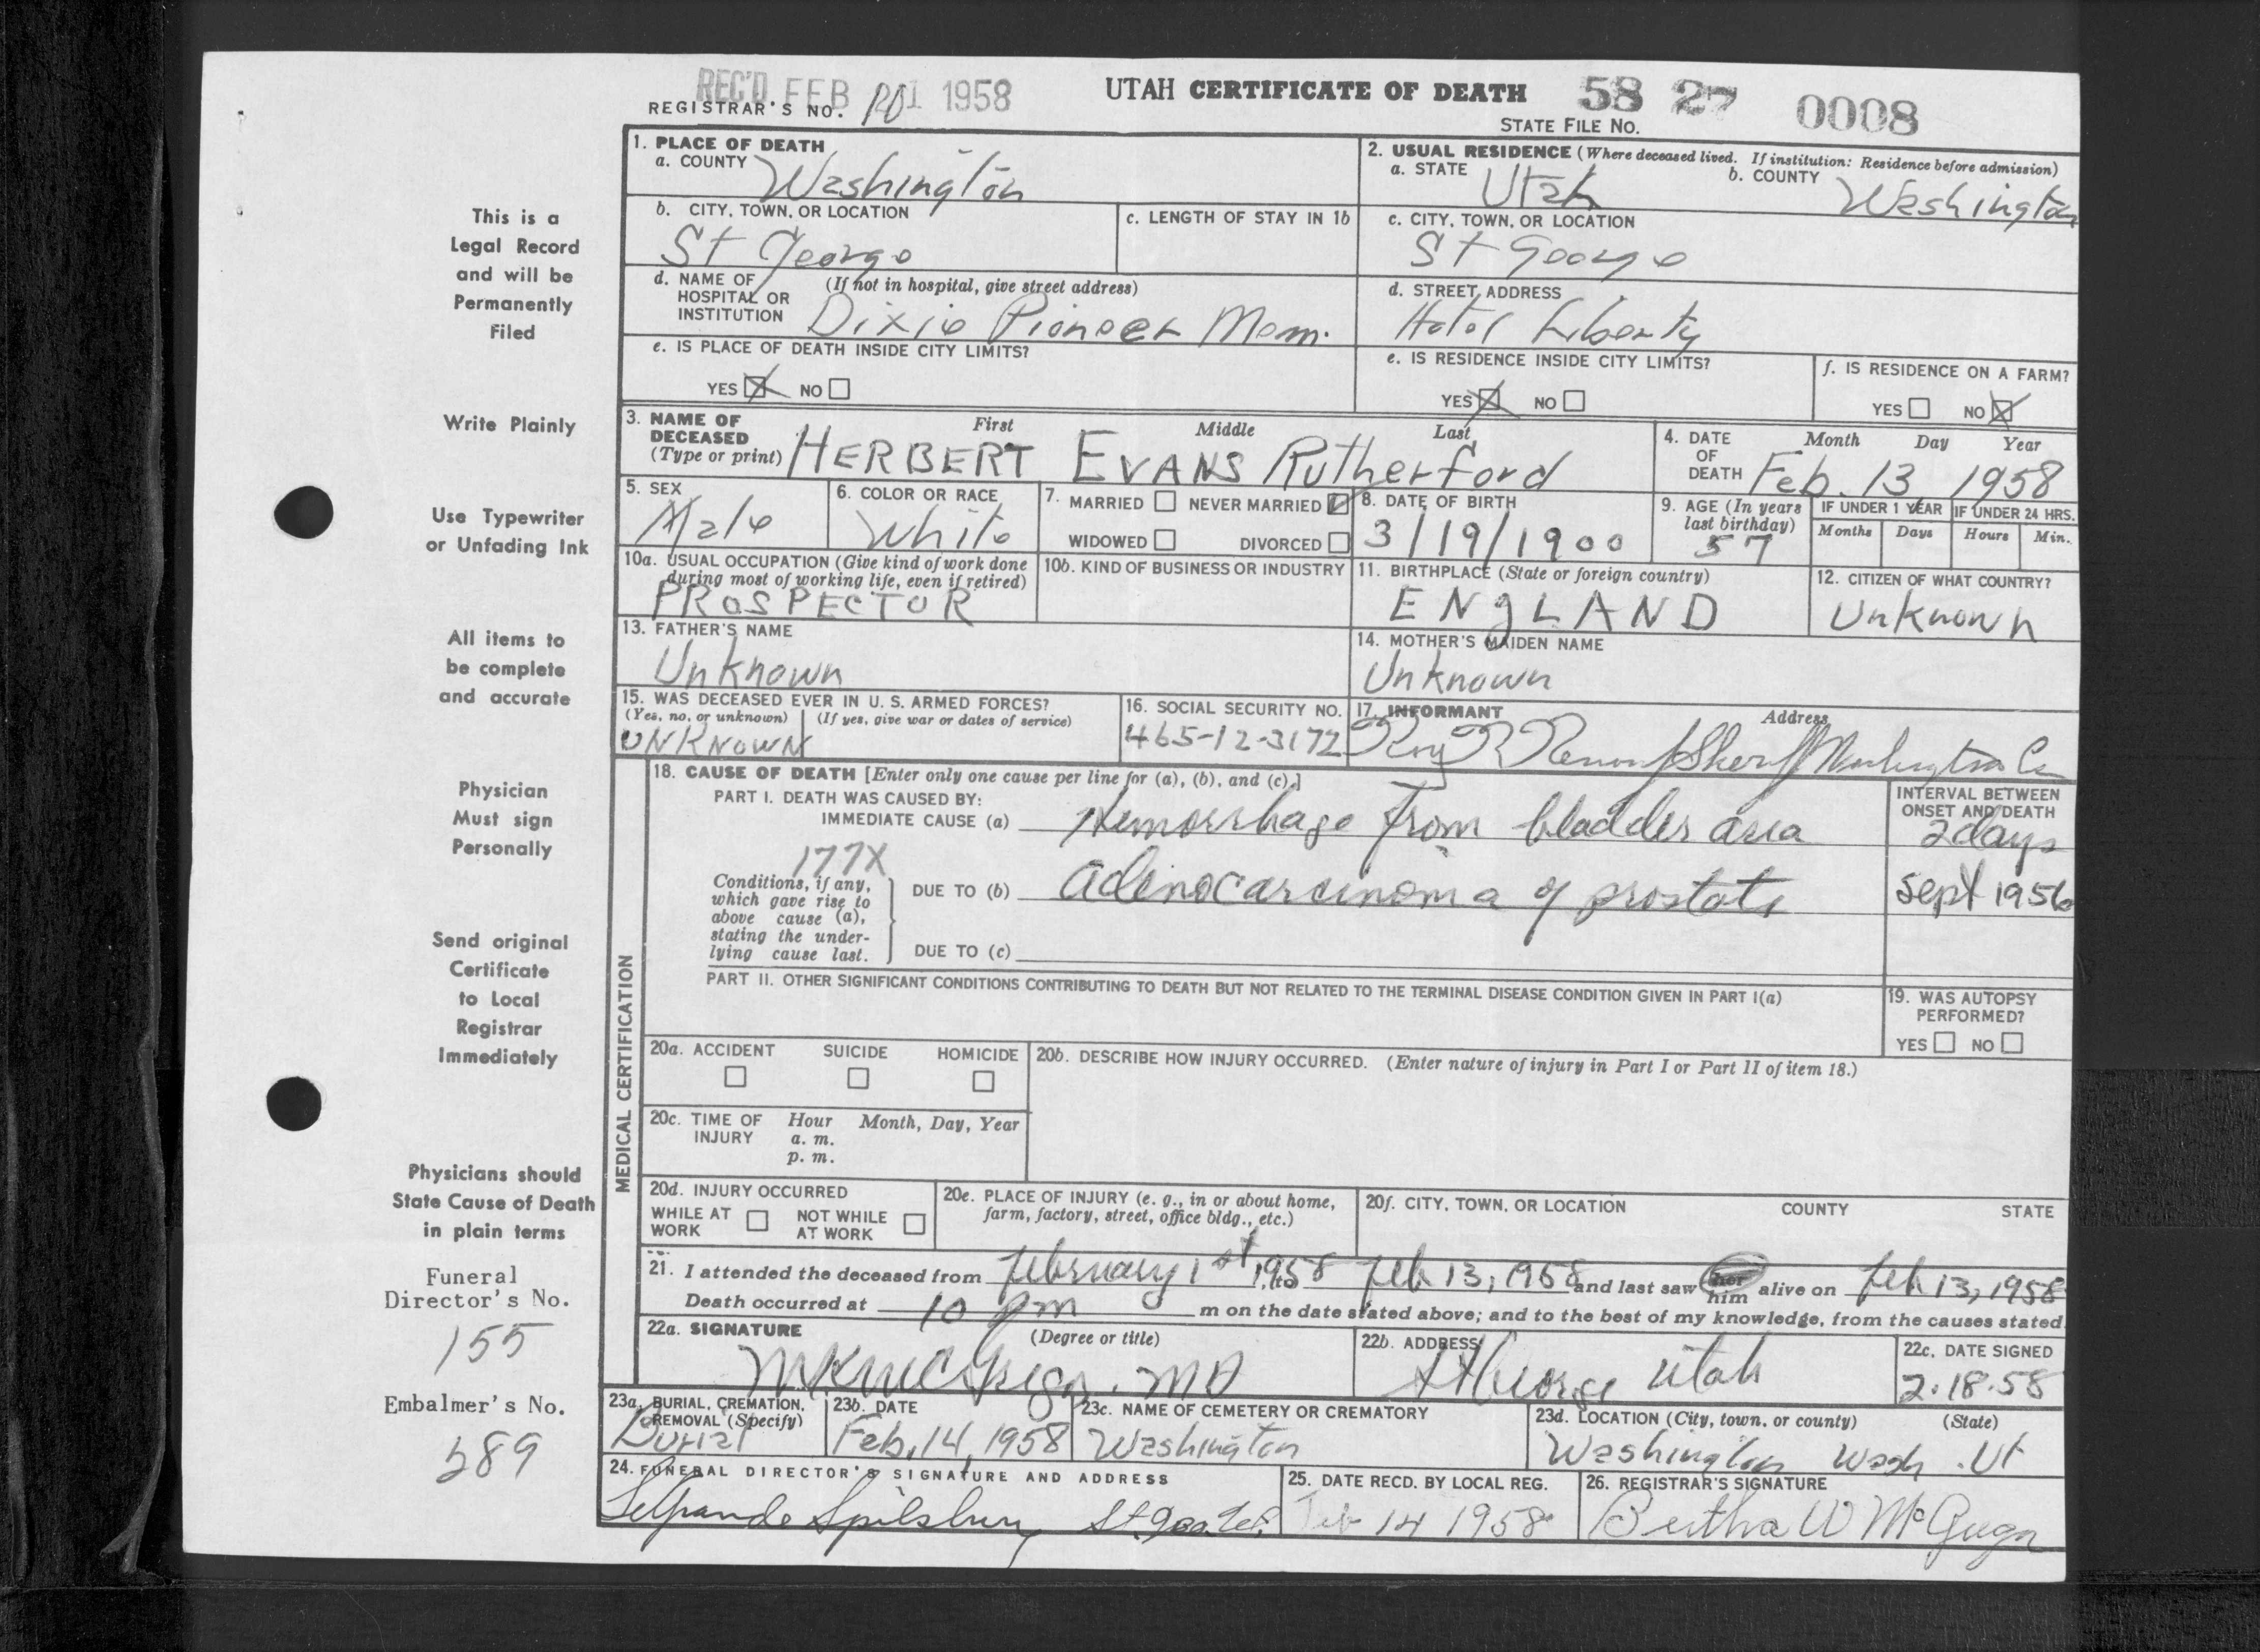 REC'D FEB 1 1958
REGISTRAR'S NO.
UTAH CERTIFICATE OF DEATH
58 27 0008
STATE FILE NO.
This is a
Legal Record
and will be
Permanently
Filed
Write Plainly
Use Typewriter
or Unfading Ink
All items to
be complete
and accurate
Physician
Must sign
Personally
Send original
Certificate
to Local
Registrar
Immediately
Physicians should
State Cause of Death
in plain terms
Funeral
Director's No.
155
Embalmer's No.
289
1. PLACE OF DEATH
a. COUNTY Washington
2. USUAL RESIDENCE (Where deceased lived. If institution: Residence before admission)
a. STATE Utah b. COUNTY Washington
b. CITY, TOWN, OR LOCATION
St George
c. LENGTH OF STAY IN 1b
c. CITY, TOWN, OR LOCATION
St George
d. NAME OF (If not in hospital, give street address)
HOSPITAL OR
INSTITUTION Dixie Pioneer Mem.
d. STREET ADDRESS
Hotel Liberty
e. IS PLACE OF DEATH INSIDE CITY LIMITS?
YES NO
e. IS RESIDENCE INSIDE CITY LIMITS?
YES NO
f. IS RESIDENCE ON A FARM?
YES NO
3. NAME OF DECEASED (Type or print) First Middle Last
HERBERT EVANS Rutherford
4. DATE OF DEATH Month Day Year
Feb. 13, 1958
5. SEX
Male
6. COLOR OR RACE
White
7. MARRIED NEVER MARRIED
WIDOWED DIVORCED
8. DATE OF BIRTH
3/19/1900
9. AGE (In years last birthday)
57
IF UNDER 1 YEAR IF UNDER 24 HRS.
Months Days Hours Min.
10a. USUAL OCCUPATION (Give kind of work done
during most of working life, even if retired)
PROSPECTOR
10b. KIND OF BUSINESS OR INDUSTRY
11. BIRTHPLACE (State or foreign country)
ENgLAND
12. CITIZEN OF WHAT COUNTRY?
Unknown
13. FATHER'S NAME
Unknown
14. MOTHER'S MAIDEN NAME
Unknown
15. WAS DECEASED EVER IN U. S. ARMED FORCES?
(Yes, no, or unknown) (If yes, give war or dates of service)
UNKNOWN
16. SOCIAL SECURITY NO.
465-12-3172
17. INFORMANT Address
Roy R Sheriff Washington Co
MEDICAL CERTIFICATION
18. CAUSE OF DEATH [Enter only one cause per line for (a), (b), and (c).]
PART I. DEATH WAS CAUSED BY:
IMMEDIATE CAUSE (a) Hemorrhage from bladder area
INTERVAL BETWEEN
ONSET AND DEATH
2 days
177X
Conditions, if any,
which gave rise to
above cause (a),
stating the under-
lying cause last.
DUE TO (b) adenocarcinoma of prostate
Sept 1956
DUE TO (c)
PART II. OTHER SIGNIFICANT CONDITIONS CONTRIBUTING TO DEATH BUT NOT RELATED TO THE TERMINAL DISEASE CONDITION GIVEN IN PART I(a)
19. WAS AUTOPSY
PERFORMED?
YES NO
20a. ACCIDENT SUICIDE HOMICIDE
20b. DESCRIBE HOW INJURY OCCURRED. (Enter nature of injury in Part I or Part II of item 18.)
20c. TIME OF INJURY Hour Month, Day, Year
a. m.
p. m.
20d. INJURY OCCURRED
WHILE AT WORK NOT WHILE AT WORK
20e. PLACE OF INJURY (e. g., in or about home,
farm, factory, street, office bldg., etc.)
20f. CITY, TOWN, OR LOCATION COUNTY STATE
21. I attended the deceased from February 1st, 1958 to Feb 13, 1958 and last saw her him alive on Feb 13, 1958
Death occurred at 10 pm m on the date stated above; and to the best of my knowledge, from the causes stated.
22a. SIGNATURE (Degree or title)
MD
22b. ADDRESS
St George Utah
22c. DATE SIGNED
2.18.58
23a. BURIAL, CREMATION,
REMOVAL (Specify)
Burial
23b. DATE
Feb. 14, 1958
23c. NAME OF CEMETERY OR CREMATORY
Washington
23d. LOCATION (City, town, or county) (State)
Washington Wash. Ut
24. FUNERAL DIRECTOR'S SIGNATURE AND ADDRESS
Spilsbury
25. DATE RECD. BY LOCAL REG.
Feb 14 1958
26. REGISTRAR'S SIGNATURE
Bertha W